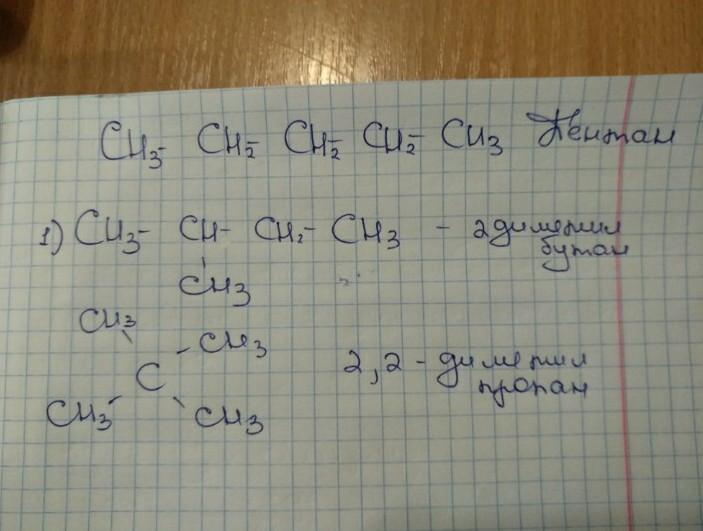 CH3- CH2- CH2- CH2- CH3 Пентан
1) CH3- CH- CH2- CH3 - 2 диметил
бутан
CH3
CH3
CH3
C
2,2-диметил
пропан
CH3
CH3